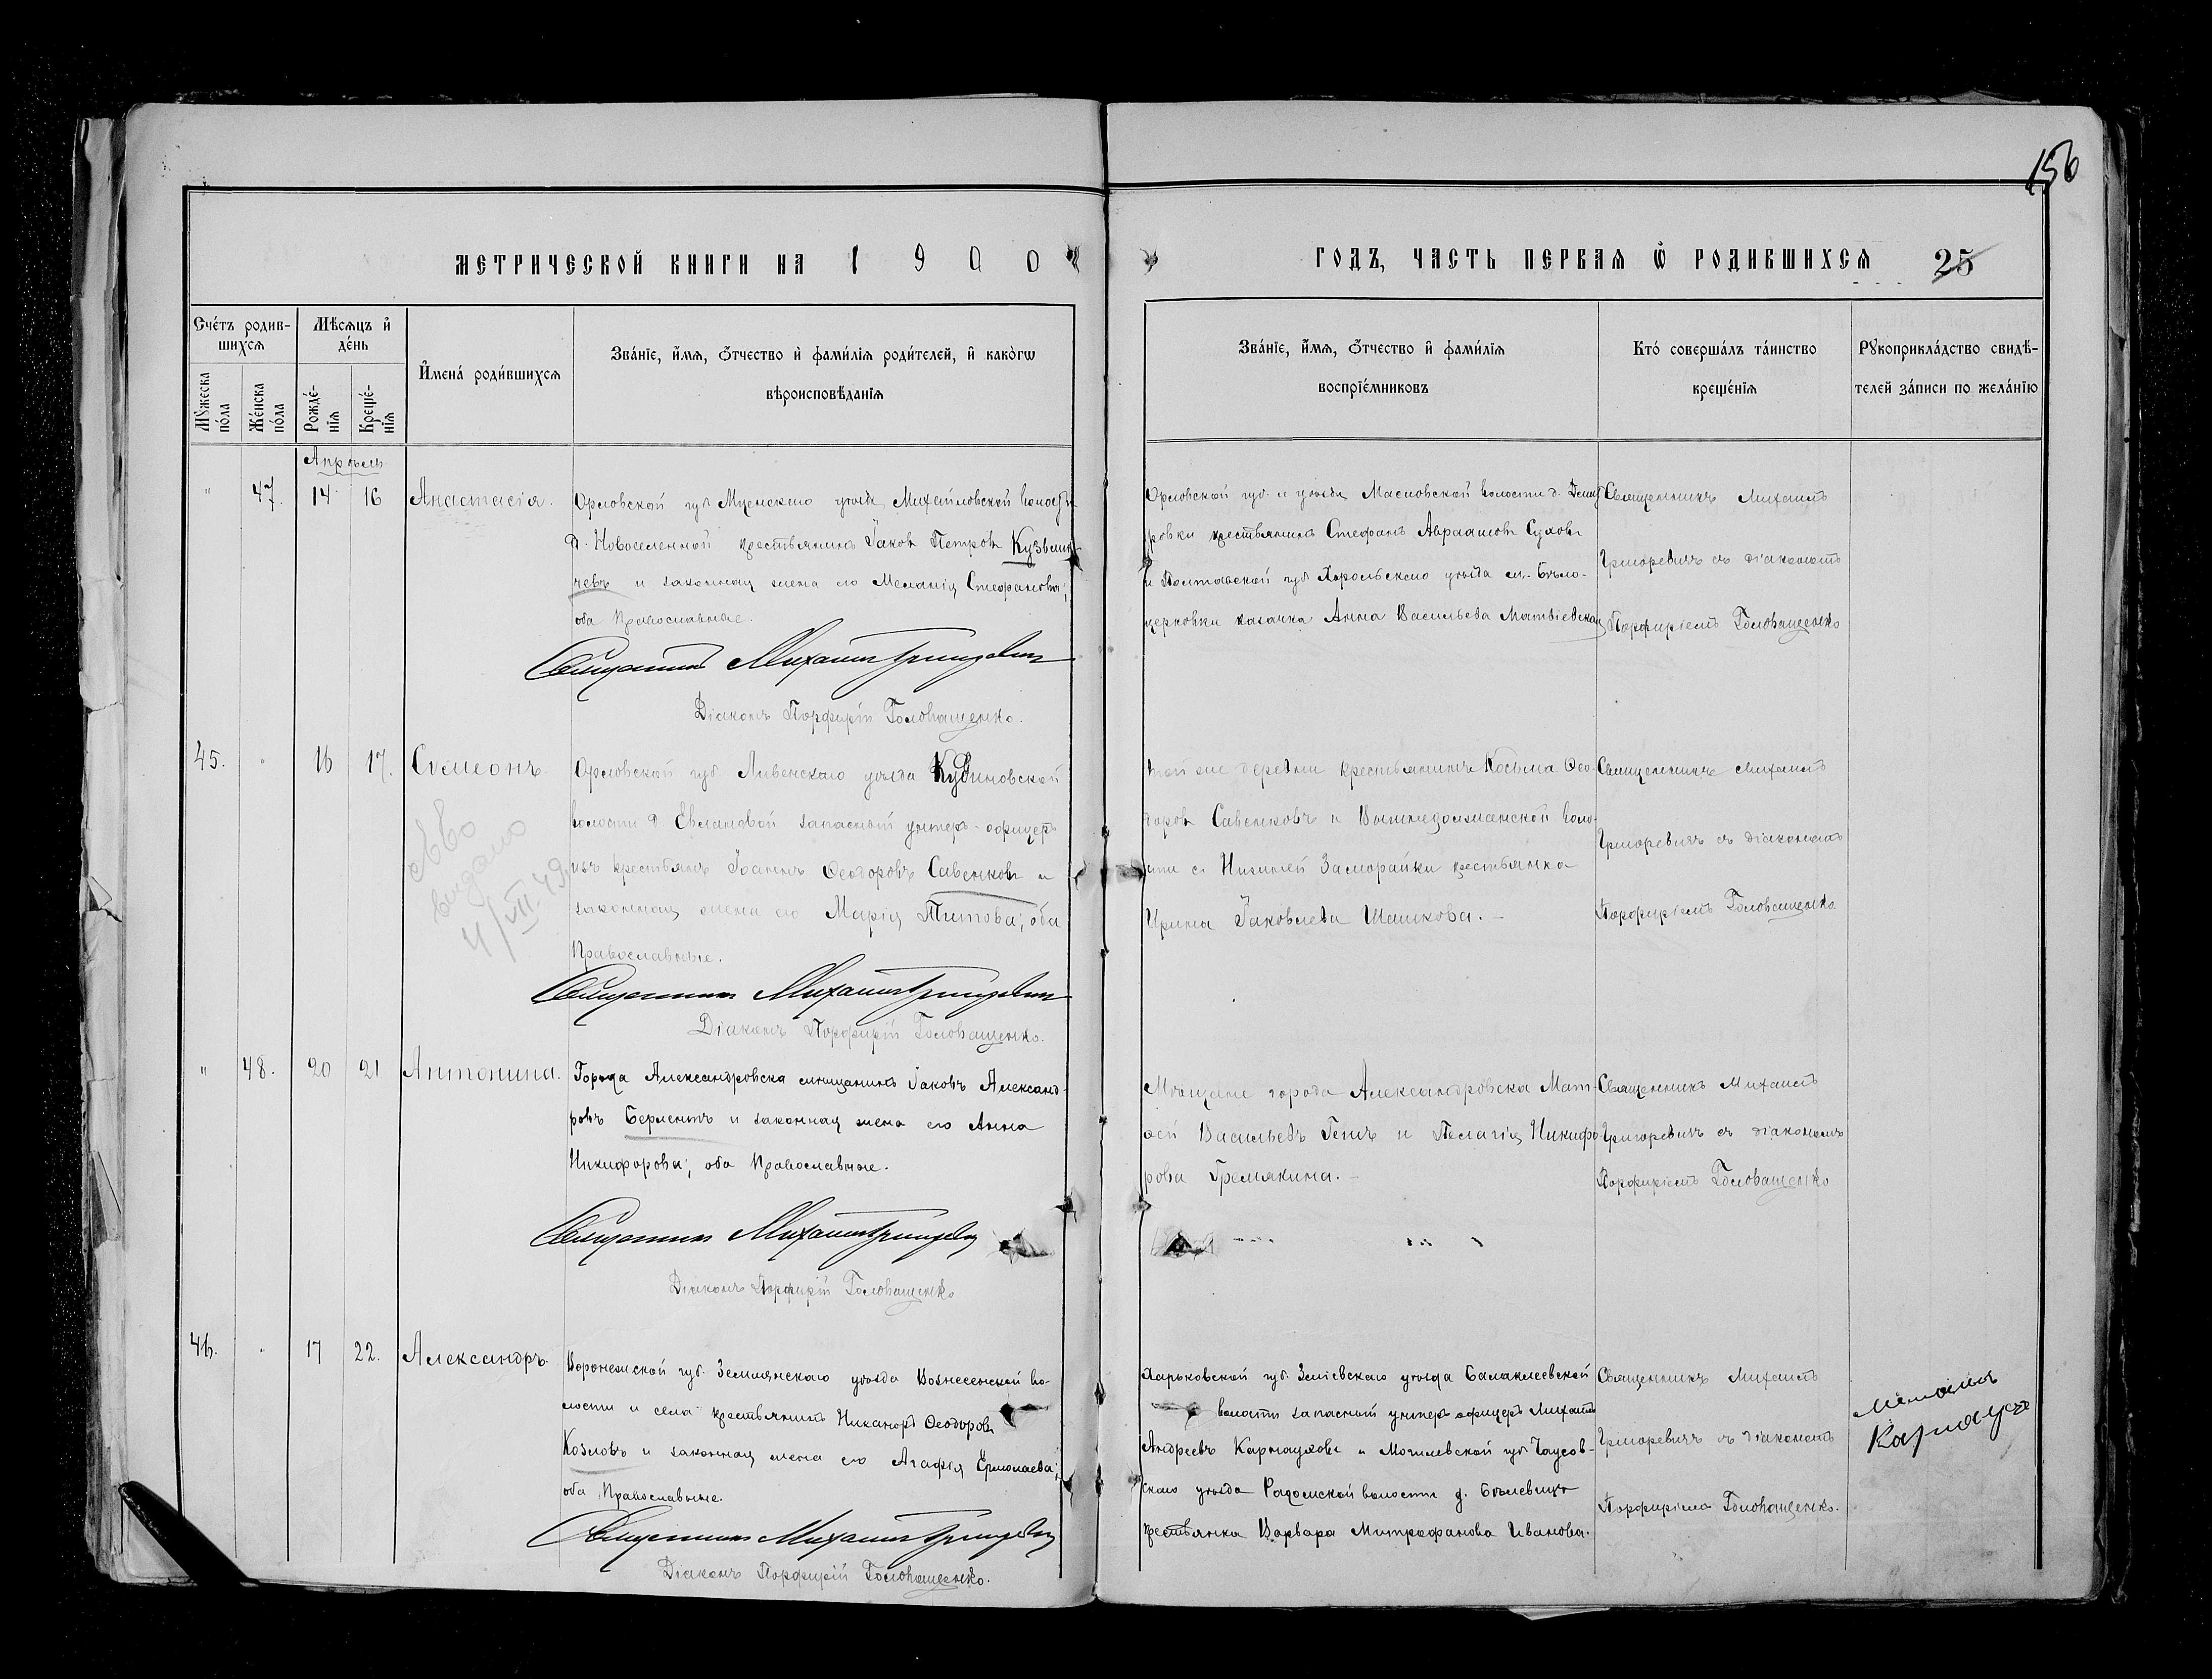 156
МЕТРИЧЕСКОЙ КНИГИ НА 1900
ГОДЪ, ЧАСТЬ ПЕРВАЯ Ѿ РОДИВШИХСЯ 25
Счéтъ родив-
шихся
Мѣсяцъ и҆
дéнь
Мꙋжеска
пóла
Жéнска
пóла
Рождé-
нїя
Крещé-
нїя
И҆менá роди́вшихся
Звáнїе, и҆́мя, ѻ҆́тчество и҆ фами́лїя роди́телей, и҆ какóгѡ
вѣроисповѣ́данїя
Звáнїе, и҆́мя, ѻ҆́тчество и҆ фами́лїя
воспрїéмниковъ
Ктó совершáлъ тáинство
крещéнїя
Рꙋкоприклáдство свидѣ́-
телей зáписи по желáнїю
Апрѣль
" 47. 14 16 Анастасія.
Орловской губ Мценскаго уѣзда, Михайловской волости
д. Новоселенной крестьянинъ Іаковъ Петровъ Кузьми-
чевъ и законная жена его Меланія Стефанова;
оба Православные.
Священникъ Михаилъ Григоревичъ
Діаконъ Порфирій Головащенко.
Орловской губ. и уѣзда Масловской волости д.
ровки крестьянинъ Стефанъ Авраамовъ Суховъ
и Полтавской губ Хорольскаго уѣзда м. Бѣло-
церковки казачка Анна Васильева Матвіевская
Священникъ Михаилъ
Григоревичъ съ діакономъ
Порфиріемъ Головащенко
45. " 16 17. Сѵмеонъ.
выдано
4/VII 49
Орловской губ. Ливенскаго уѣзда Кудиновской
волости д Евлановой запасный унтеръ-офицеръ
изъ крестьянъ Іоаннъ Ѳеодоровъ Савенковъ и
законная жена его Марія Титова; оба
Православные.
Священникъ Михаилъ Григоревичъ
Діаконъ Порфирій Головащенко.
той же деревни крестьянинъ Косьма Ѳео-
доровъ Савенковъ и Вышнедолжанской воло-
сти с. Нижней Заморайки крестьянка
Ирина Іаковлева Шашкова. –
Священникъ Михаилъ
Григоревичъ съ діакономъ
Порфиріемъ Головащенко
" 48. 20 21 Антонина.
Города Александровска мѣщанинъ Іаковъ Александ-
ровъ Берлентъ и законная жена его Анна
Никифорова; оба Православные.
Священникъ Михаилъ Григоревичъ
Діаконъ Порфирій Головащенко
Мѣщане города Александровска Мат-
ѳей Васильевъ Гетъ и Пелагія Никифо-
рова Гремякина. –
Священникъ Михаилъ
Григоревичъ съ діакономъ
Порфиріемъ Головащенко
46. " 17 22. Александръ.
Воронежской губ. Землянскаго уѣзда Вознесенской во-
лости и села крестьянинъ Никаноръ Ѳеодоровъ
Козловъ и законная жена его Агафія Ермолаева;
оба Православные.
Священникъ Михаилъ Григоревичъ
Діаконъ Порфирій Головащенко.
Харьковской губ. Зміевскаго уѣзда Балаклеевской
волости запасный унтеръ офицеръ Михаилъ
Андреевъ Карнауховъ и Могилевской губ Чаусов-
скаго уѣзда Радомской волости д.
крестьянка Варвара Митрофанова Иванова.
Священникъ Михаилъ
Григоревичъ съ діакономъ
Порфиріемъ Головащенко.